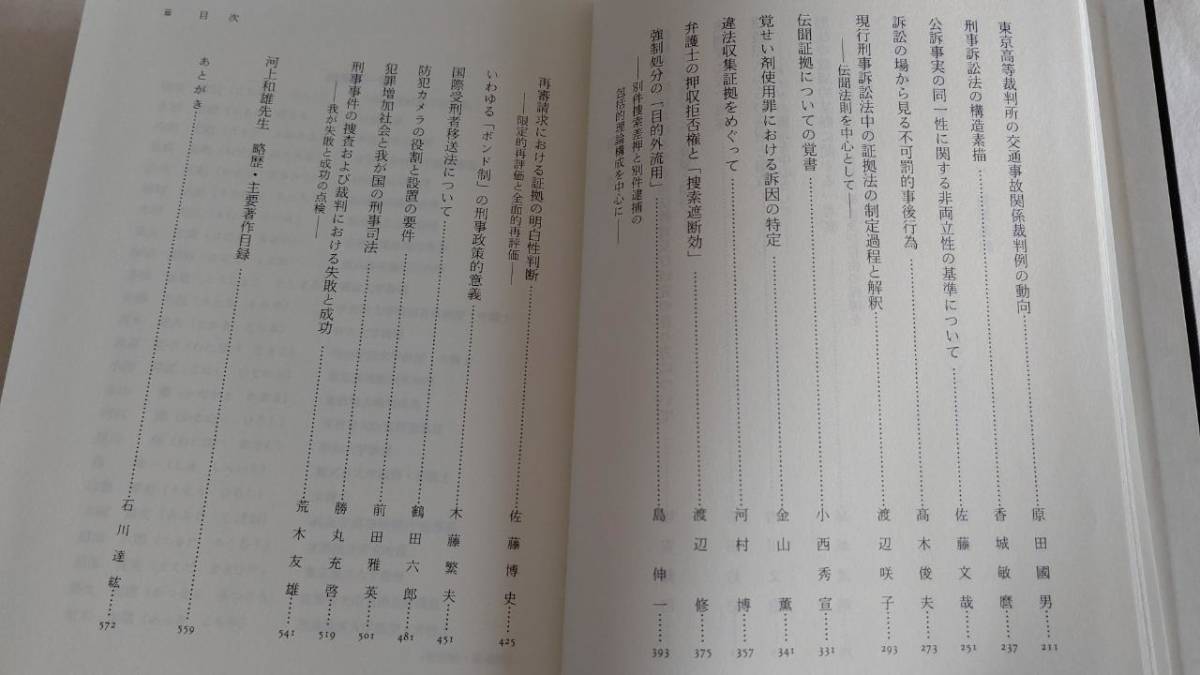 東京高等裁判所の交通事故関係裁判例の動向……原田國男 211
刑事訴訟法の構造素描……香城敏麿 237
公訴事実の同一性に関する非両立性の基準について……佐藤文哉 251
訴訟の場から見る不可罰的事後行為……髙木俊夫 273
現行刑事訴訟法中の証拠法の制定過程と解釈……渡辺咲子 293
――伝聞法則を中心として――
伝聞証拠についての覚書……小西秀宣 331
覚せい剤使用罪における訴因の特定……金山薫 341
違法収集証拠をめぐって……河村博 357
弁護士の押収拒否権と「捜索遮断効」……渡辺修 375
強制処分の「目的外流用」……島伸一 393
――別件捜索差押と別件逮捕の
包括的理論構成を中心に――
再審請求における証拠の明白性判断……佐藤博史 425
――限定的再評価と全面的再評価――
いわゆる「ボンド制」の刑事政策的意義……木藤繁夫 451
国際受刑者移送法について……鶴田六郎 481
防犯カメラの役割と設置の要件……前田雅英 501
犯罪増加社会と我が国の刑事司法……勝丸充啓 519
刑事事件の捜査および裁判における失敗と成功……荒木友雄 541
――我が失敗と成功の点検――
河上和雄先生 略歴・主要著作目録……559
あとがき……石川達紘 572
目次